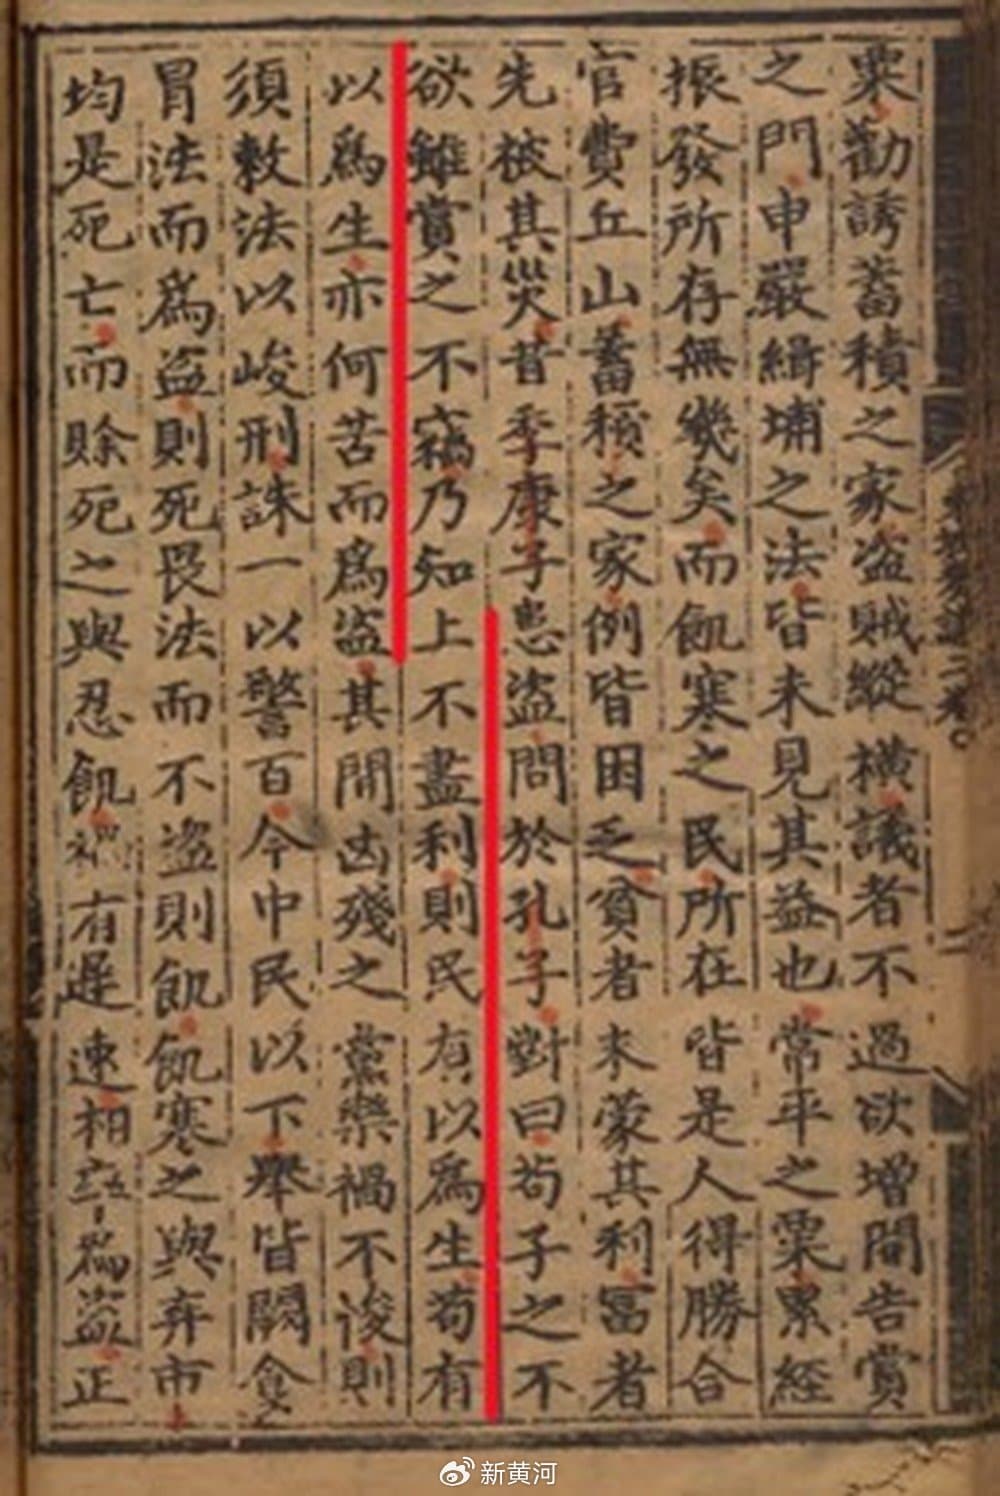 粟勸誘蓄積之家盗賊縱橫議者不過欲增開告賞
之門申嚴緝捕之法皆未見其益也常平之粟累經
振發所存無幾矣而飢寒之民所在皆是人得勝合
官費丘山蓄積之家例皆困乏貧者未蒙其利富者
先被其災昔季康子患盗問於孔子對曰苟子之不
欲雖賞之不竊乃知上不盡利則民有以為生苟有
以為生亦何苦而為盗其間凶殘之黨樂禍不悛則
須敕法以峻刑誅一以警百今中民以下舉皆闕食
冒法而為盗則死畏法而不盗則飢飢寒之與弃市
均是死亡而賒死之與忍飢禍有遲速相率為盗正
新黄河